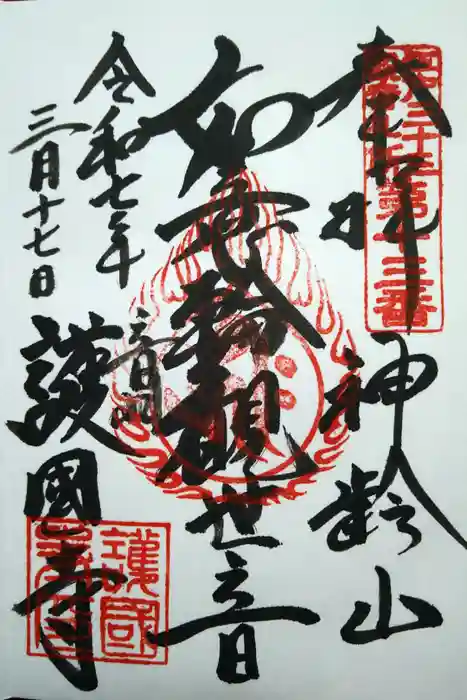 奉拝
神齢山
第十三番
如意輪観世音
音羽
護國寺
令和七年
三月十七日
護國